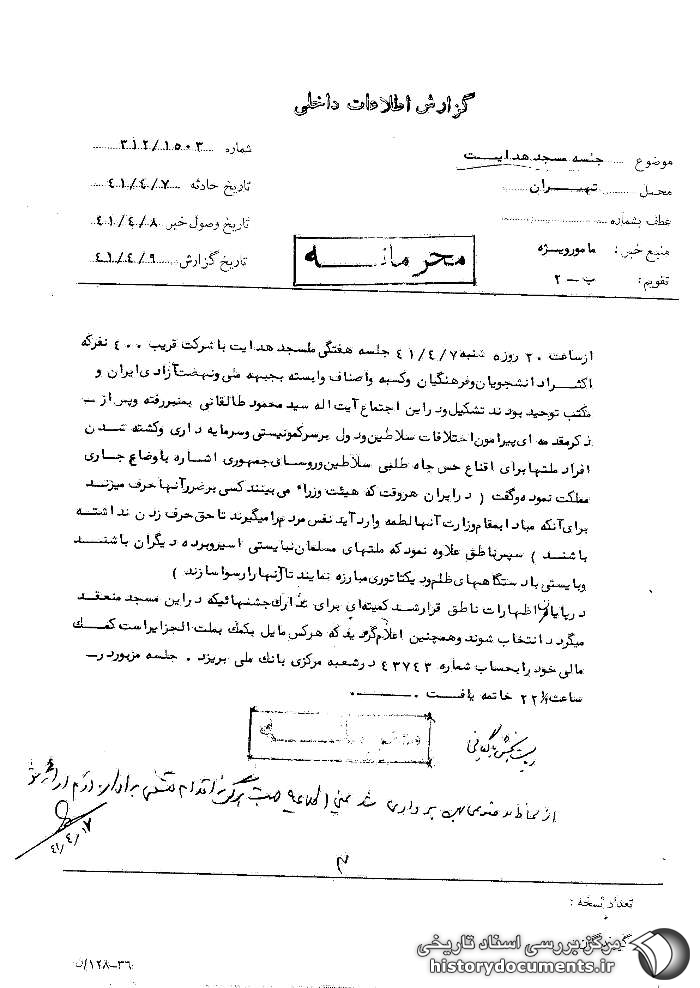 گزارش اطلاعات داخلی
موضوع جلسه مسجد هدایت
محل تهران
عطف بشماره
منبع خبر: مامور ویژه
تقویم: ب - ۲
شماره ۳۱۲/۱۵۰۳
تاریخ حادثه ۴۱/۴/۷
تاریخ وصول خبر ۴۱/۴/۸
تاریخ گزارش ۴۱/۴/۹
محرمانه
ازساعت ۲۰ روزه شنبه ۴۱/۴/۷ جلسه هفتگی مسجد هدایت با شرکت قریب ۴۰۰ نفرکه
اکثراً دانشجویان و فرهنگیان وکسبه واصناف وابسته بجبهه ملی ونهضت آزادی ایران و
مکتب توحید بودند تشکیل ودراین اجتماع آیت اله سید محمود طالقانی بمنبررفته وپس از
ذکرمقدمه ای پیرامون اختلافات سلاطین ودول برسرکمونیستی وسرمایه داری وکشته شدن
افراد ملتها برای اقناع حس جاه طلبی سلاطین وروسای جمهوری اشاره باوضاع جاری
مملکت نموده وگفت ( درایران هروقت که هیئت وزراء می بینند کسی برضررآنها حرف میزند
برای آنکه مبادا بمقام وزارت آنها لطمه وارد آید نفس مردم را میگیرند تا حق حرف زدن نداشته
باشند ) سپس ناطق علاوه نمود که ملتهای مسلمان نبایستی اسیروبرده دیگران باشند
وبایستی با دستگاههای ظلم ودیکتاتوری مبارزه نمایند تا آنها را رسوا سازند )
درپایان اظهارات ناطق قرارشد کمیته ای برای تدارک جشنهائیکه دراین مسجد منعقد
میگردد انتخاب شوند وهمچنین اعلام گردید که هرکس مایل بکمک بملت الجزایراست کمک
مالی خود را بحساب شماره ۴۳۷۴۳ درشعبه مرکزی بانک ملی بریزد . جلسه مزبور در
ساعت ۲۲½ خاتمه یافت .
محرمانه
رئیس بخش بایگانی
۴۱/۴/۱۷
تعداد نسخه :
گیرندگان
۳۶-۱۲۸/ن
مرکز بررسی اسناد تاریخی
historydocuments.ir